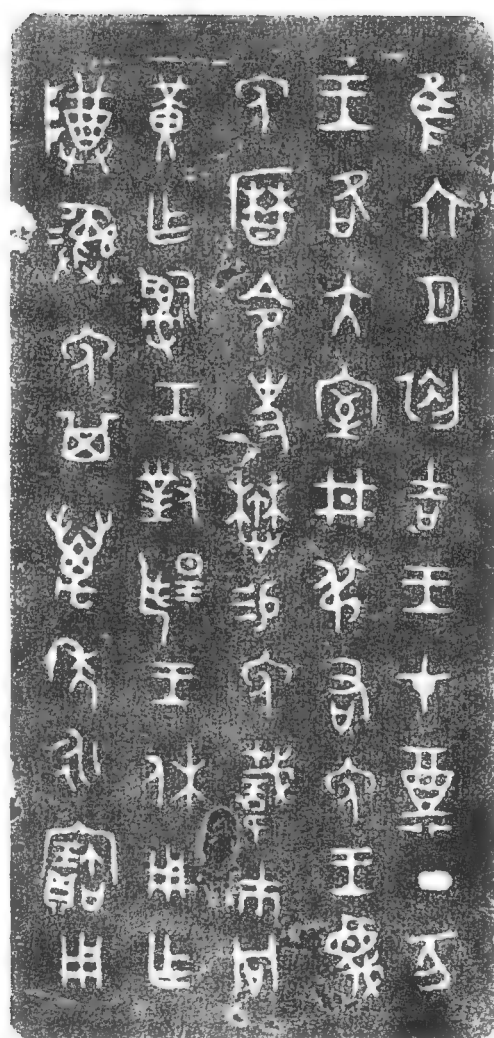 隹六月初吉王才奠丁亥
王各大室井叔右免王蔑
免曆令史懋易免載巿冋
黃乍司工對揚王休用乍
尊彝免其萬年永寶用